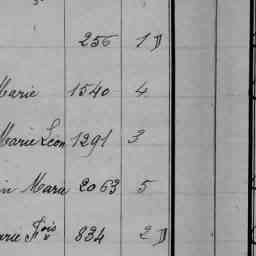 256 1 D
Marie 1540 4
Marie Léon 1291 3
in Marie 2063 5
arie Fois 834 2 D